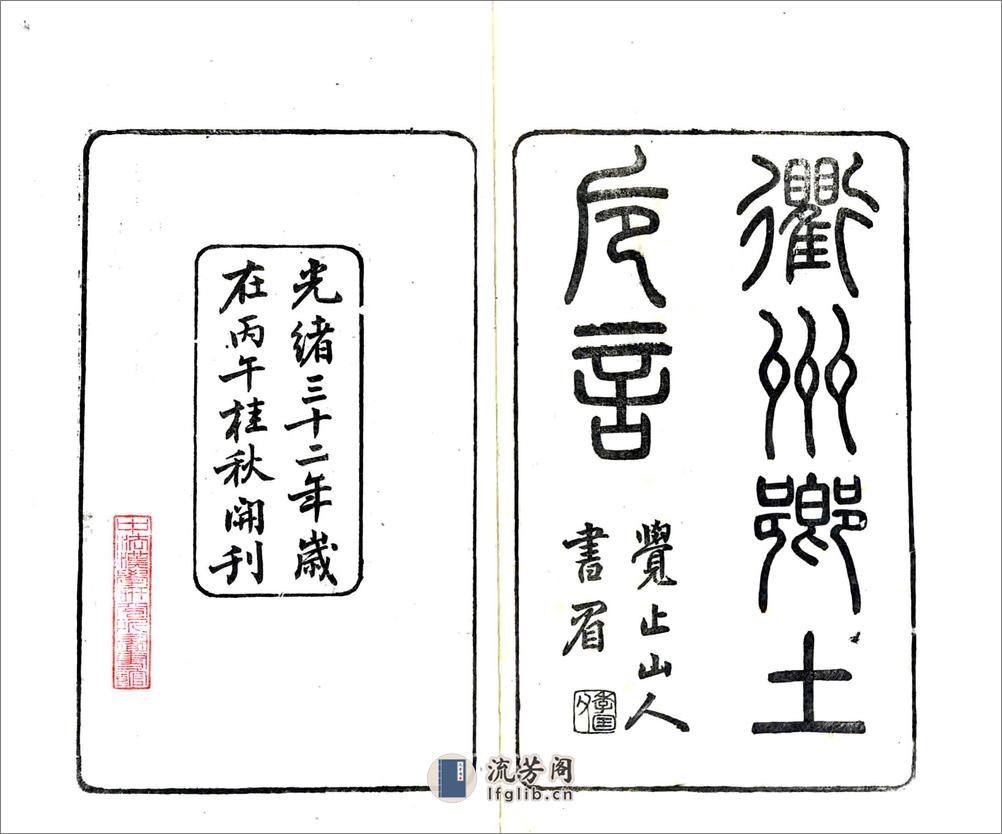 衢州鄉土
卮言
覺止山人
書眉
光緒三十二年歲
在丙午桂秋開刊
流芳阁
lfglib.cn